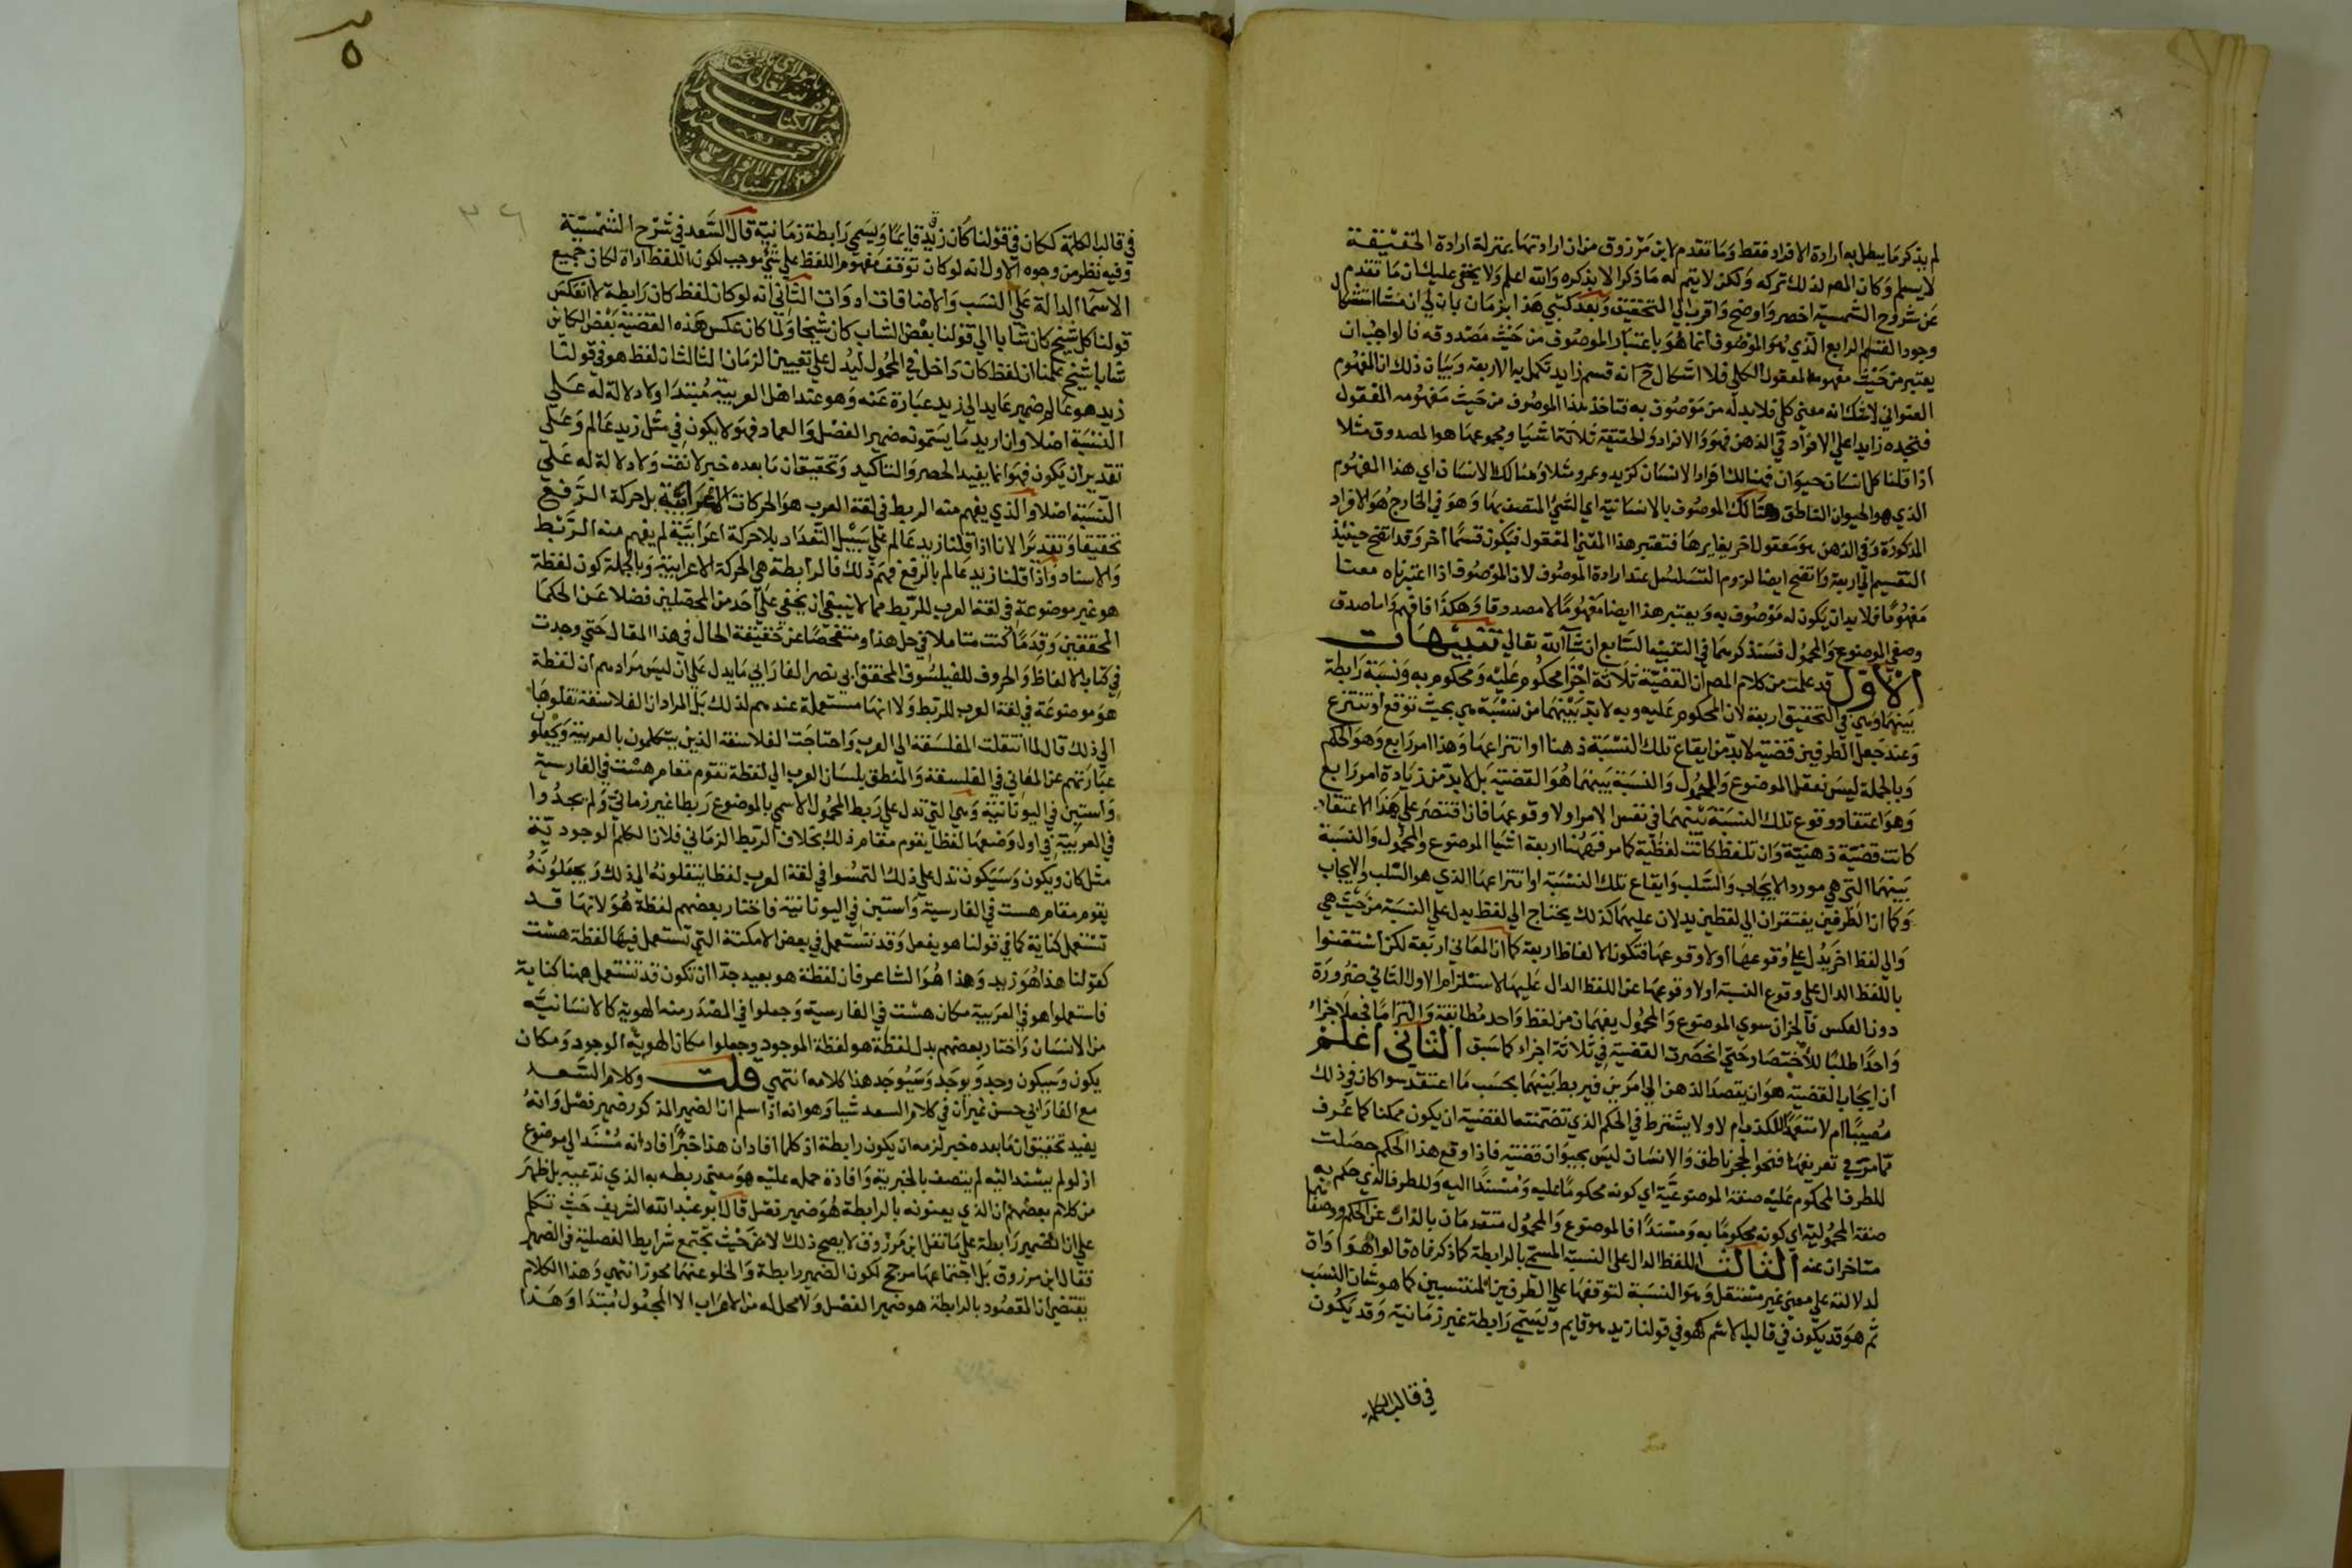 لم يذكر ما يبطل به ارادة الافراد فقط وما تقدم لابن مرزوق من ان ارادتها بمنزلة ارادة الحقيقة
لا يسلم وكان المص لذلك تركه ولكن لا يتم له ما ذكر الا بذكره والله اعلم ولا يخفى عليك ان ما تقدم
عن شروح الشمسية اخصر واوضح واقرب الي التحقيق وبعد كتبي هذا بزمان بان لي ان منشا استشكال
وجود القسم الرابع الذي هو الموصوف انما هو باعتبار الموصوف من حيث مصدوقه فالواجب ان
يعتبر من حيث مفهومه المعقول الكلي فلا اشكال ح انه قسم زايد تكمل به الاربعة وبيان ذلك ان المفهوم
العنواني لا شك انه معنى كلي فلا بد له من موصوف به فتاخذ لهذا الموصوف من حيث مفهومه المعقول
فتجده زايدا علي الافراد في الذهن فهو والافراد والحقيقة ثلاثة اشيا ومجموعها هو المصدوق مثلا
اذا قلنا كل انسان حيوان فهنالك افراد الانسان كزيد وعمرو مثلا وهنالك الانسان اي هذا المفهوم
الذي هو الحيوان الناطق وهنالك الموصوف بالانسانية اي الشي المتصف بها وهو في الخارج هو الافراد
المذكورة وفي الذهن هو معقول اخر يغايرها فتعتبر هذا المعنى المعقول فيكون قسما اخر وقد اتضح حينئذ
التقسيم الي اربعة واتضح ايضا لزوم التسلسل عند ارادة الموصوف لان الموصوف اذا اعتبرناه معنا
مفهوما فلا بد ان يكون له موصوف به ويعتبر هذا ايضا مفهوما لا مصدوقا وهكذا فافهم واما صدق
وصفي الموضوع والمحمول فستذكرهما في التنبيه السابع ان شا الله تعالي تنبيهات
الاول قد علمت من كلام المص ان القضية ثلاثة اجزا محكوم عليه ومحكوم به ونسبة رابطة
بينهما وهي في التحقيق اربعة لان المحكوم عليه وبه لا بد بينهما من نسبة هي بحيث توقع او تنتزع
وعند جعل الطرفين قضية لا بد من ايقاع تلك النسبة ذهنا او انتزاعها وهذا امر رابع وهو الحكم
وبالجملة ليس تعقل الموضوع والمحمول والنسبة بينهما هو القضية بل لا بد من زيادة امر رابع
وهو اعتقاد وقوع تلك النسبة بينهما في نفس الامر او لا وقوعها فان اقتصر علي هذا الاعتقاد
كانت قضية ذهنية وان تلفظ كانت لفظية كما مر فههنا اربعة اشيا الموضوع والمحمول والنسبة
بينهما التي هي مورد الايجاب والسلب وايقاع تلك النسبة او انتزاعها الذي هو السلب والايجاب
وكما ان الطرفين يفتقران الي لفظين يدلان عليهما كذلك يحتاج الي لفظ يدل علي النسبة من حيث هي
والي لفظ اخر يدل علي وقوعها او لا وقوعها فتكون الالفاظ اربعة كما ان المعاني اربعة لكن استغنوا
باللفظ الدال علي وقوع النسبة او لا وقوعها عن اللفظ الدال عليها لاستلزام الاول الثاني ضرورة
دون العكس فالجزان سوي الموضوع والمحمول يفهمان من لفظ واحد مطابقة والتزاما فجعلا جزاء
واحدا طلبا للاختصار حتى انحصرت القضية في ثلاثة اجزاء كما سبق الثاني اعلم
ان ايجاب القضية هو ان يقصد الذهن الي امرين فيربط بينهما بحسب ما اعتقد سوا كان في ذلك
مصيبا ام لا متعمدا للكذب ام لا ولا يشترط في الحكم الذي تضمنته القضية ان يكون ممكنا كما عرف
مما مر في تعريفها فنحو الحجر ناطق والانسان ليس بحيوان قضية فاذا وقع هذا الحكم حصلت
للطرف المحكوم عليه صفة الموضوعية اي كونه محكوما عليه ومسندا اليه وللطرف الذي حكم به
صفة المحمولية اي كونه محكوما به ومسندا فالموضوع والمحمول متقدمان بالذات عن الحكم ووصفاهما
متاخران عنه الثالث اللفظ الدال على النسبة المسمي بالرابطة كما ذكرناه قالوا هو اداة
لدلالته علي معنى غير مستقل وهو النسبة لتوقفها علي الطرفين المنتسبين كما هو شان النسب
ثم هو قد يكون في قالب الاسم كهو في قولنا زيد هو قايم ويسمي رابطة غير زمانية وقد يكون
في قالب الكلمة
٥
وقف
لله تعالى
الكتاب
محمد
ابو الانوار
السادات
في قالب الكلمة ككان في قولنا كان زيد قايما ويسمي رابطة زمانية قال السعد في شرح الشمسية
وفيه نظر من وجوه الاول انه لو كان توقف مفهوم اللفظ علي شي موجب لكون اللفظ اداة لكان جميع
الاسما الدالة علي النسب والاضافات ادوات الثاني انه لو كان لفظ كان رابطة لانعكس
قولنا كل شيخ كان شابا الي قولنا بعض الشاب كان شيخا ولما كان عكس هذه القضية بعض الكاين
شابا شيخ علمنا ان لفظ كان داخل في المحمول ليدل علي تعيين الزمان الثالث ان لفظ هو في قولنا
زيد هو عالم ضمير عايد الي زيد عبارة عنه وهو عند اهل العربية مبتدا ولا دلالة له علي
النسبة اصلا وان اريد ما يسمونه ضمير الفصل والعماد فهو لا يكون في مثل زيد عالم وعلي
تقدير ان يكون فهو انما يفيد الحصر والتاكيد وتحقيق ان ما بعده خبر لا نعت ولا دلالة له علي
النسبة اصلا والذي يفهم منه الربط في لغة العرب هو الحركات الاعرابية بل حركة الرفع
تحقيقا وتقديرا لانا اذا قلنا زيد عالم علي سبيل التعداد بلا حركة اعرابية لم يفهم منه الربط
والاسناد واذا قلنا زيد عالم بالرفع فهم ذلك فالرابطة هي الحركة الاعرابية وبالجملة كون لفظة
هو غير موضوعة في لغة العرب للربط مما لا ينبغي ان يخفي علي احد من المحصلين فضلا عن الحكما
المحققين وقدما كنت متاملا في حل هذا ومتفحصا عن حقيقة الحال في هذا المقال حتي وجدت
في كتاب الالفاظ والحروف للفيلسوف المحقق ابي نصر الفارابي ما يدل علي ان ليس مرادهم ان لفظة
هو موضوعة في لغة العرب للربط ولا انها مستعملة عندهم لذلك بل المراد ان الفلاسفة نقلوها
الي ذلك قال لما انتقلت الفلسفة الي العرب واحتاجت الفلاسفة الذين يتكلمون بالعربية ويجعلون
عبارتهم عن المعاني في الفلسفة والمنطق بلسان العرب الي لفظة تقوم مقام هست في الفارسية
واستين في اليونانية وهي التي تدل علي ربط المحمول الاسمي بالموضوع ربطا غير زماني ولم يجدوا
في العربية في اول وضعها لفظا يقوم مقام ذلك بخلاف الربط الزماني فلان الكلم الوجودية
مثل كان ويكون وسيكون تدل علي ذلك التمسوا في لغة العرب لفظا ينقلونه الي ذلك ويجعلونه
يقوم مقام هست في الفارسية واستين في اليونانية فاختار بعضهم لفظة هو لانها قد
تستعمل كناية كما في قولنا هو يفعل وقد تستعمل في بعض الامكنة التي تستعمل فيها لفظة هست
كقولنا هذا هو زيد وهذا هو الشاعر فان لفظة هو بعيد جدا ان تكون قد تستعمل ههنا كناية
فاستعملوا هو في العربية مكان هست في الفارسية وجعلوا في المصدر منه الهوية كالانسانية
من الانسان واختار بعضهم بدل لفظة هو لفظة الموجود وجعلوا مكان الهوية الوجود ومكان
يكون وسيكون وجد ويوجد وسيوجد هذا كلامه انتهي قلت وكلام السعد
مع الفارابي حسن غير ان في كلام السعد شيا وهو انه اذا سلم ان الضمير المذكور ضمير فصل وانه
يفيد تحقيق ان ما بعده خبر لزمه ان يكون رابطة اذ كلما افاد ان هذا خبر افاد انه مسند الي موضوع
اذ لو لم يسند اليه لم يتصف بالخبرية وافادة حمله عليه هو معني ربطه به الذي ندعيه بل ظهر
من كلام بعضهم ان الذي يعنونه بالرابطة هو ضمير فصل قال ابو عبد الله الشريف حيث تكلم
علي ان الضمير رابطة علي ما نقل ابن مرزوق لا يصح ذلك الا من حيث تجتمع شرايط الفصلية في الضمير
فقال ابن مرزوق بل اجتماعها مرجح لكون الضمير رابطة والخلو عنها مجوز انتهي وهذا الكلام
يقتضي ان المقصود بالرابطة هو ضمير الفصل ولا محل له من الاعراب الا المجعول مبتدا وهذا